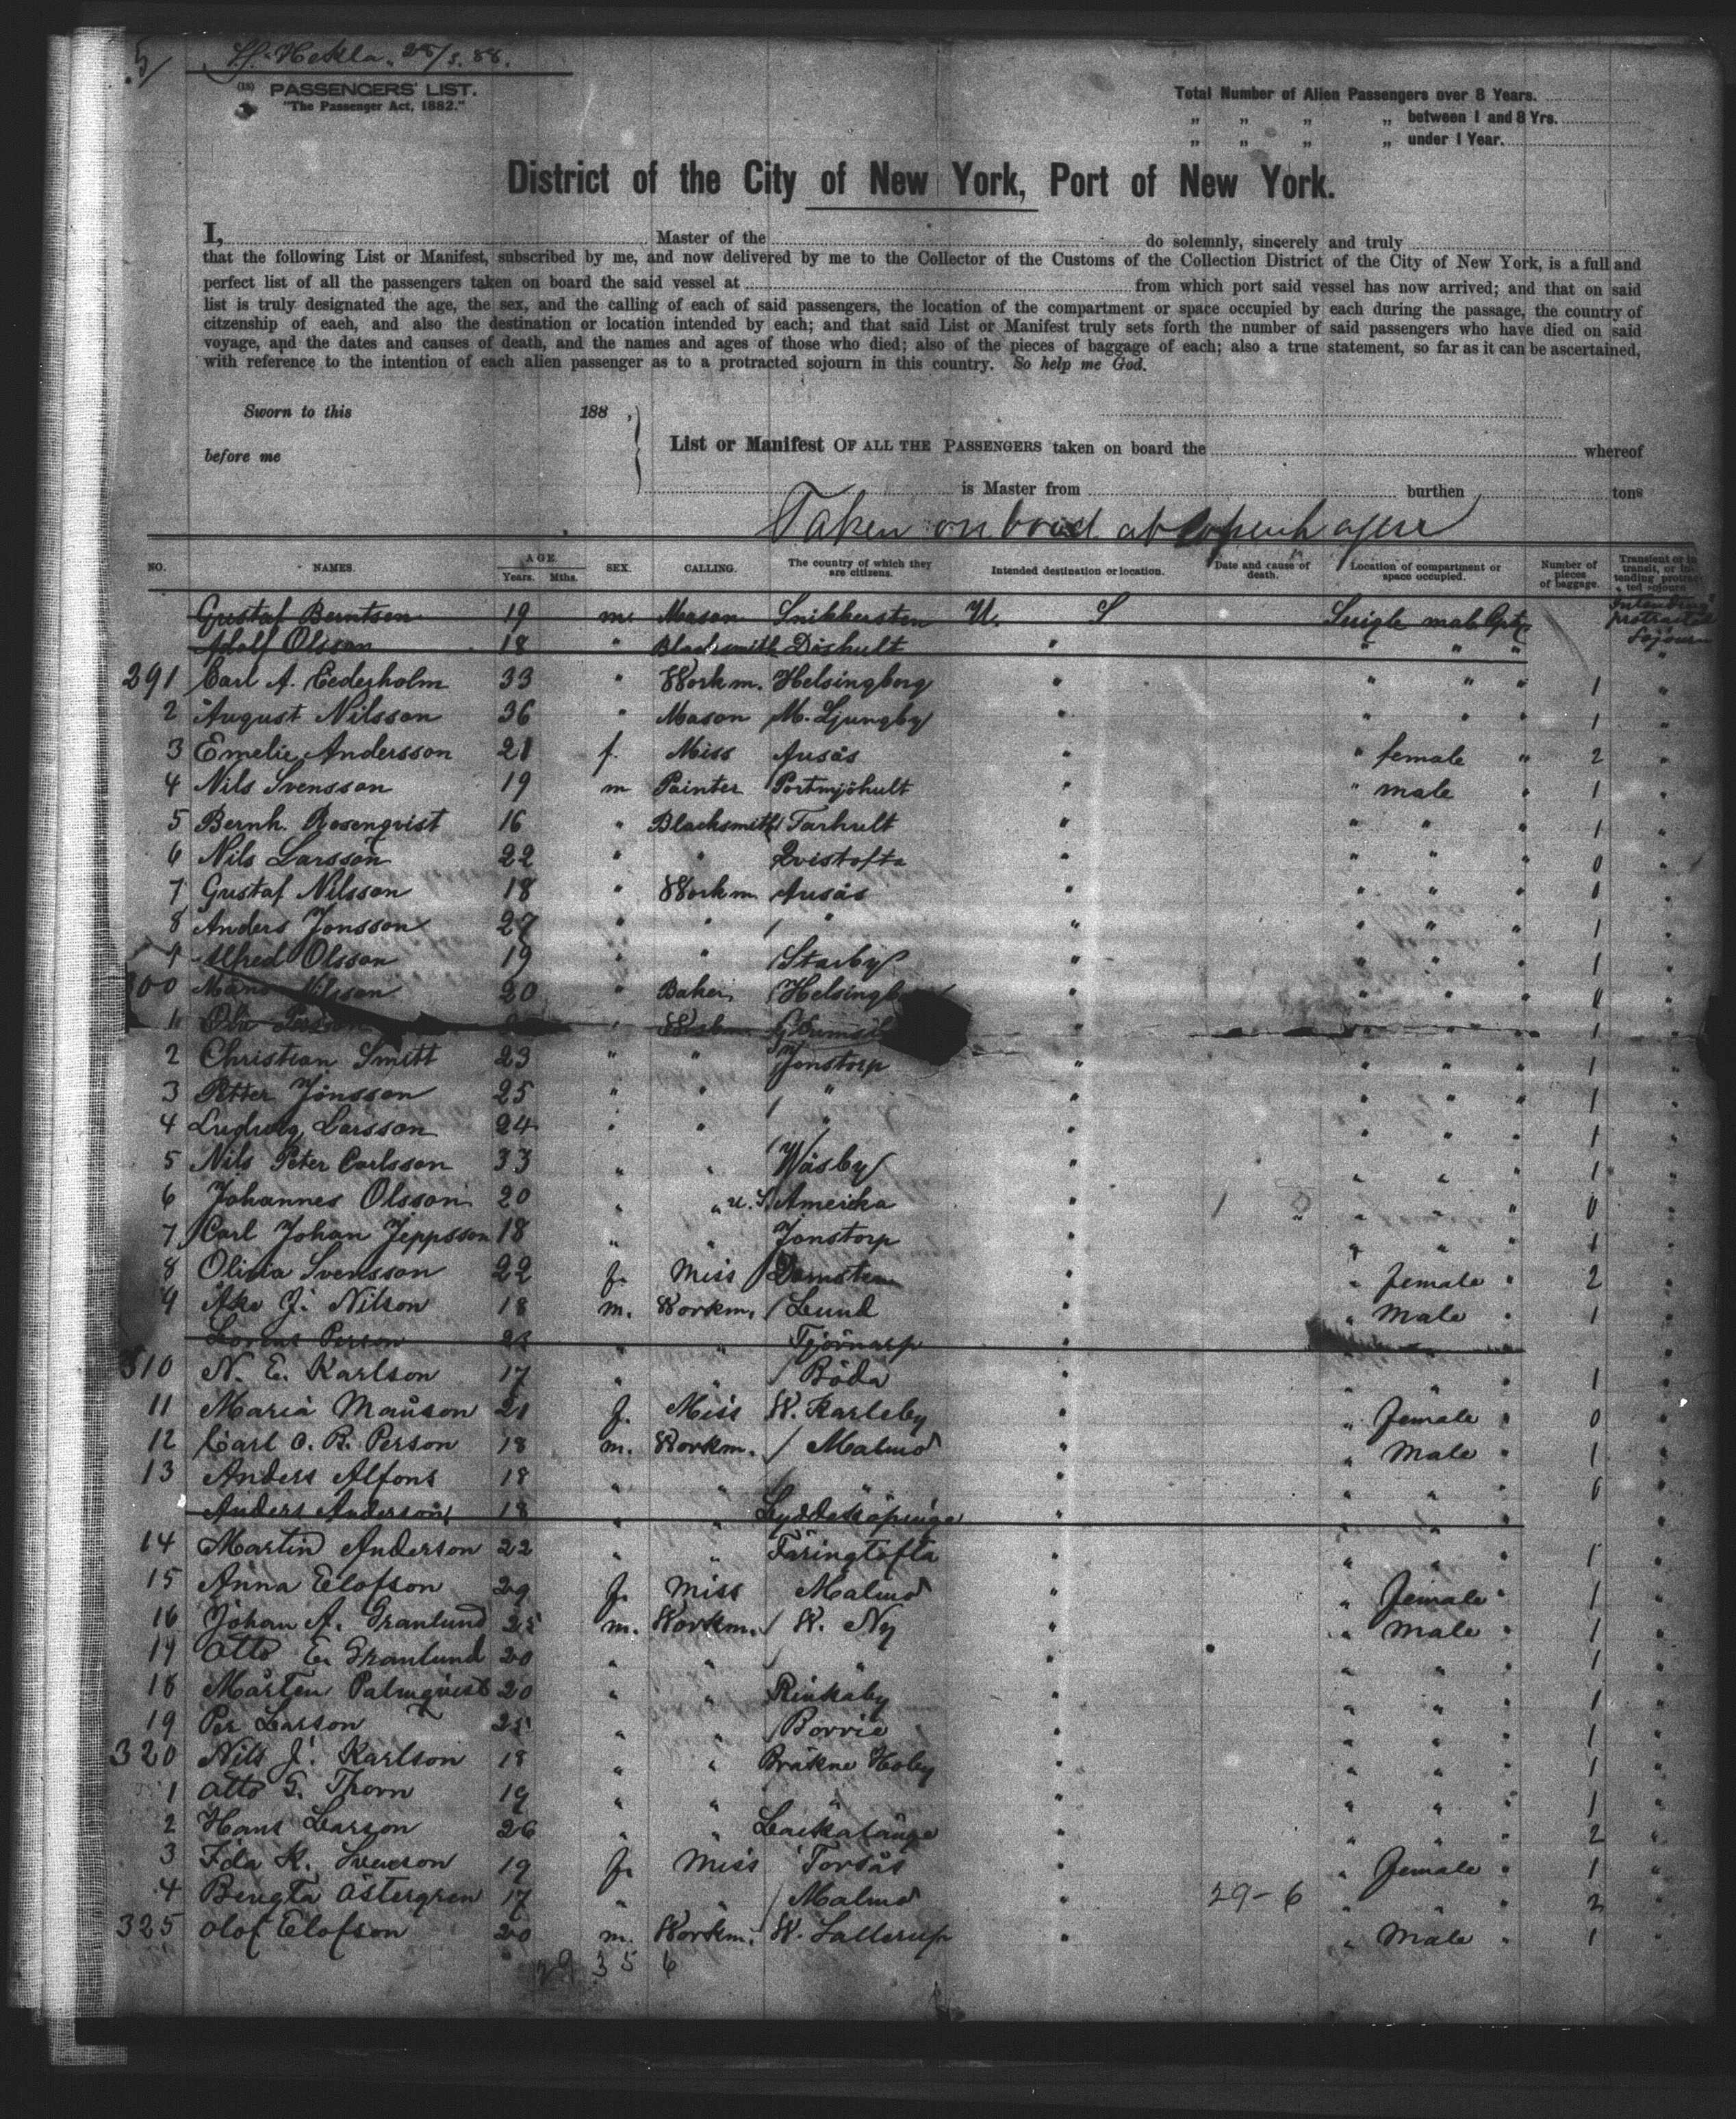 5/ SS. Hekla. 28/5. 88.
(18) PASSENGERS' LIST.
"The Passenger Act, 1882."
Total Number of Alien Passengers over 8 Years.
„ „ „ „ between 1 and 8 Yrs.
„ „ „ „ under 1 Year.
District of the City of New York, Port of New York.
I, Master of the do solemnly, sincerely and truly
that the following List or Manifest, subscribed by me, and now delivered by me to the Collector of the Customs of the Collection District of the City of New York, is a full and
perfect list of all the passengers taken on board the said vessel at from which port said vessel has now arrived; and that on said
list is truly designated the age, the sex, and the calling of each of said passengers, the location of the compartment or space occupied by each during the passage, the country of
citzenship of each, and also the destination or location intended by each; and that said List or Manifest truly sets forth the number of said passengers who have died on said
voyage, and the dates and causes of death, and the names and ages of those who died; also of the pieces of baggage of each; also a true statement, so far as it can be ascertained,
with reference to the intention of each alien passenger as to a protracted sojourn in this country. So help me God.
Sworn to this 188 ,
before me
List or Manifest OF ALL THE PASSENGERS taken on board the whereof
is Master from burthen tons
Taken on board at Copenhagen
NO. NAMES. AGE Years. Mths. SEX. CALLING. The country of which they are citizens. Intended destination or location. Date and cause of death. Location of compartment or space occupied. Number of pieces of baggage. Transient or in transit, or intending protracted sojourn
Gustaf Berntson 19 m. Mason Snikkersten U. S Single male Cpt. Intending protracted Sojourn
Adolf Olsson 18 " Blacksmith Dishult " " " " "
291 Carl A. Cederholm 33 " Workm. Helsingborg " " " " 1 "
2 August Nilsson 36 " Mason M. Ljungby " " " " 1 "
3 Emelie Andersson 21 f. Miss Ausås " " female " 2 "
4 Nils Svensson 19 m Painter Portmjöhult " " male " 1 "
5 Bernh. Rosenqvist 16 " Blacksmith Tarhult " " " " 1 "
6 Nils Larsson 22 " " Qvistofta " " " " 0 "
7 Gustaf Nilsson 18 " Workm Ausås " " " " 0 "
8 Anders Jonsson 27 " " " " " " " 1 "
9 Alfred Olsson 19 " " Starby " " " " 1 "
300 Måns Nilsson 20 " Baker Helsingb " " " " 0 "
1 " " " " " 1 "
2 Christian Smitt 23 " " Jonstorp " " " " 1 "
3 Petter Jönsson 25 " " " " " " " 1 "
4 Ludwig Larsson 24 " " " " " " " 1 "
5 Nils Peter Carlsson 33 " " Wäsby " " " " 1 "
6 Johannes Olsson 20 " " U. S. Amerika " " " " 0 "
7 Carl Johan Jeppsson 18 " " Jonstorp " " " " 1 "
8 Olivia Svensson 22 f. Miss " " female " 2 "
9 Åke J. Nilson 18 m. Workm. Lund " " Male " 1 "
Lorens Person 21 " " Tjörnarp " "
310 N. E. Karlson 17 " " Böda " " " " 1 "
11 Maria Månson 21 f. Miss W. Karleby " " female " 0 "
12 Carl O. R. Person 18 m. Workm. Malmö " " Male " 1 "
13 Anders Alfons 18 " " " " " " " 0 "
Anders Anderson 18 " " Lyddeköpinge " " " "
14 Martin Anderson 22 " " Färingtofta " " " " 1 "
15 Anna Elofson 29 f. Miss Malmö " " female " 1 "
16 Johan A. Granlund 25 m. Workm. W. Ny " " Male " 1 "
17 Otto E. Granlund 20 " " " " " " " 1 "
18 Mårten Palmqvist 20 " " Rinkaby " " " " 1 "
19 Per Larson 25 " " Borrie " " " " 1 "
320 Nils J. Karlson 18 " " Bräkne Hoby " " " " 1 "
1 Otto G. Thorn 19 " " " " " " " 1 "
2 Hans Larson 26 " " " " " " 2 "
3 Ida K. Svenson 19 f. Miss Torsås " " female " 1 "
4 Bengta Östergren 17 " " Malmö " 29-6 " " " 2 "
325 Olof Elofson 20 m. Workm. W. Sallerup " " Male " 1 "
29 35 6